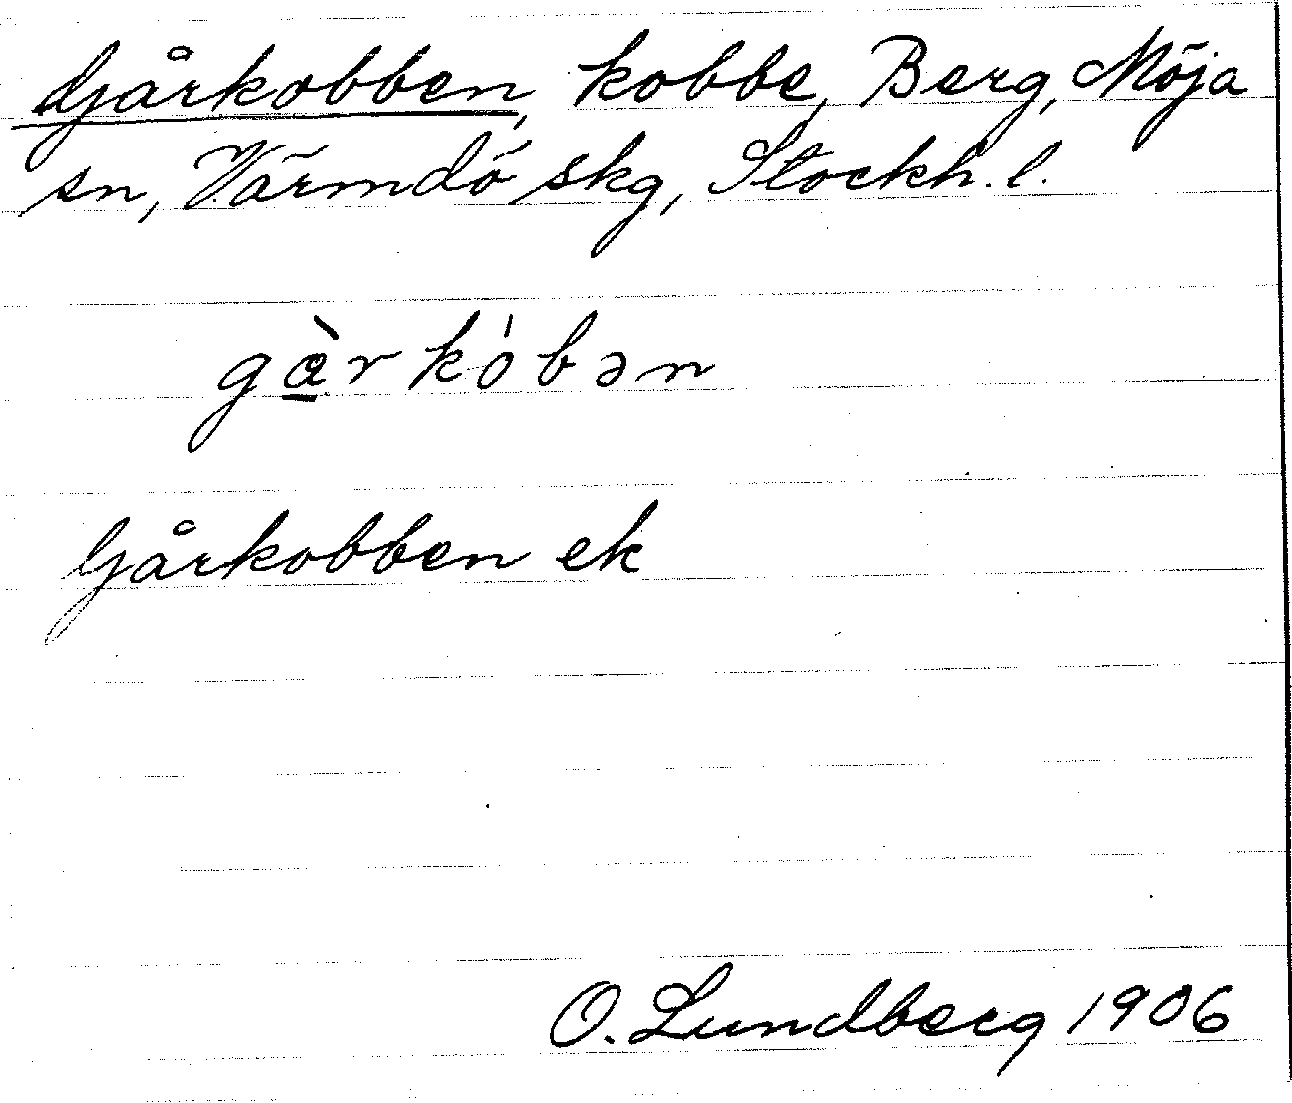 Gårkobben, kobbe, Berg, Möja
sn, Värmdö skg, Stockh. l.
gàrkóbən
Gårkobben ek
O. Lundberg 1906